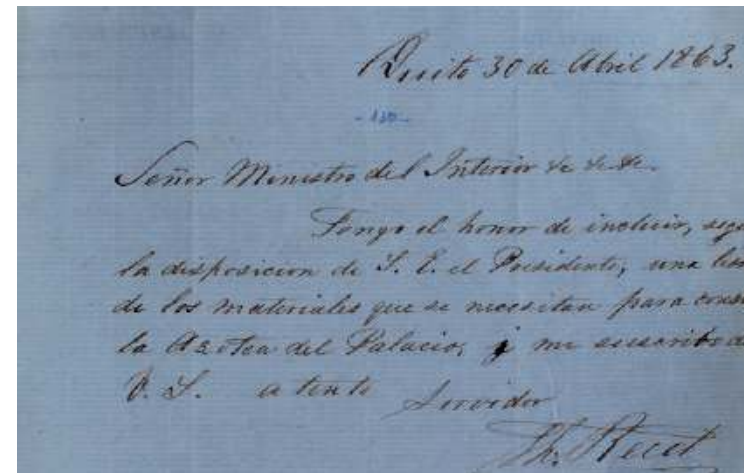 Quito 30 de Abril 1863.
Señor Ministro del Interior &c &c &c.
Tengo el honor de incluir,
la disposicion de S. E. el Presidente, una
de los materiales que se necesitan para
la Azotea del Palacio, y me suscribo
V. S. atento servidor
Th. Reed